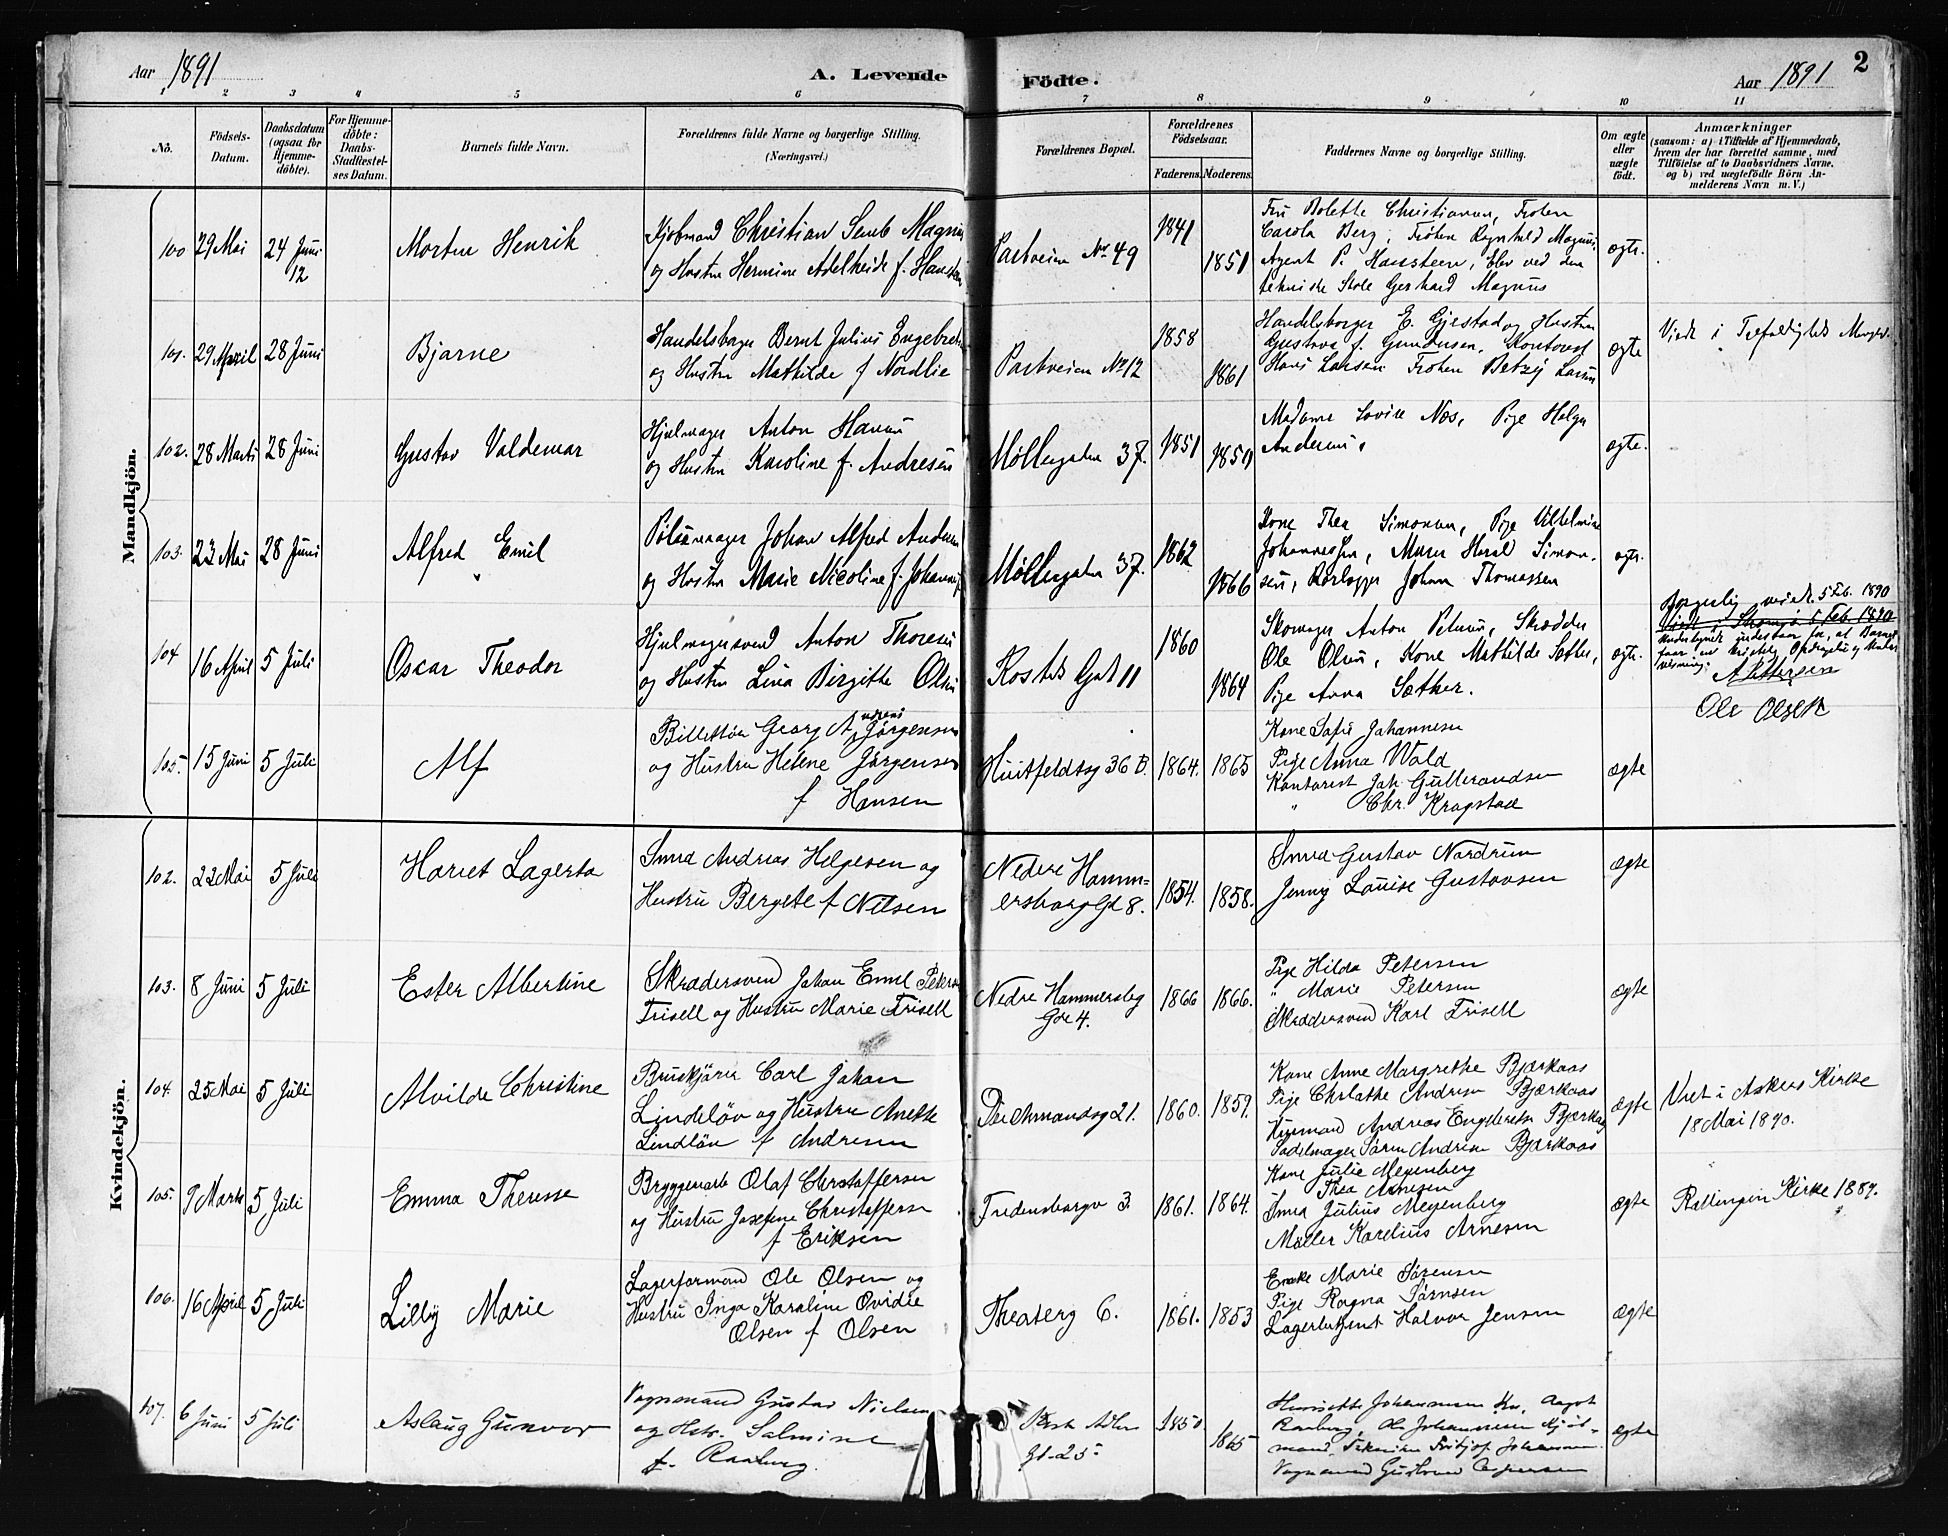 Aar 1891
A. Levende
Födte.
Aar 1891
2
1 2 3 4 5 6 7 8 9 10 11
No.
Födsels-
Datum.
Daabsdatum
(ogsaa for
Hjemme-
döbte).
For Hjemme-
döbte:
Daabs-
Stadfæstel-
ses Datum.
Barnets fulde Navn.
Forældrenes fulde Navne og borgerlige Stilling.
(Næringsvei.)
Forældrenes Bopæl.
Forældrenes
Födselsaar.
Faderens. Moderens.
Faddernes Navne og borgerlige Stilling.
Om ægte
eller
uægte
födt.
Anmærkninger
(saasom: a) i Tilfælde af Hjemmedaab,
hvem der har forrettet samme, med
Tilföielse af to Daabsvidners Navne,
og b) ved uægtefödte Börn An-
melderens Navn m. V.)
Mandkjön.
100 29 Mai 24 Juni
12
Morten Henrik
Kjøbmand Christian Semb Magnus
og Hustru Hermine Adelheide f. Hansteen
Parkveien No 49
1841
1851
Fru Bolette Christiansen, Frøken
Carola Berg, Frøken Ragnhild Magnus,
Agent P. Hansteen, Elev ved den
tekniske Skole Gerhard Magnus
ægte.
101. 29 April 28 Juni
Bjarne
Handelsborger Bernt Julius Engebretsen
og Hustru Mathilde f Nordlie
Parkveien No 12
1858
1861
Handelsborger E. Gjestad og Hustru
Gustava f. Gundersen, Kontorist
Hans Larsen Frøken Betzy Larsen
ægte
Viede i Trefoldigheds Menighed.
102. 28 Marts 28 Juni
Gustav Valdemar
Hjulmager Anton Hansen
og Hustru Karoline f. Andresen
Møllergaden 37.
1851
1850
Madame Lovise Næs, Pige Helga
Andersen.
ægte.
103. 23 Mai 28 Juni
Alfred Emil
Pølsemager Johan Alfred Andersen
og Hustru Marie Nicoline f. Johannesen
Møllergaden 37.
1862
1866
Kone Thea Simonsen, Pige Vilhelmine
Johannessen, Murer Harald Simon-
sen, Rørlægger Johan Thomassen
ægte.
104 16 April 5 Juli
Oscar Theodor
Hjulmagersvend Anton Thoresen
og Hustru Lina Birgitte Olsen
Rosteds Gd 11
1860
1864
Skomager Anton Petersen, Skrædder
Ole Olsen, Kone Mathilde Sæther,
Pige Anna Sæther.
ægte.
Borgerlig viede. 5 Feb. 1890
5 Feb. 1890
A Pettersen
Ole Olsen
105. 15 Juni 5 Juli
Alf
Billettør Georg Andreas Jørgensen
og Hustru Helene Jørgensen
f Hansen
Huitfeldtsg 36 B.
1864. 1865
Kone Sofie Johannesen
Pige Anna Wold
Kontorist Joh. Gulbrandsen
" Chr. Krogstad
ægte
Kvindekjön.
102. 22 Mai 5 Juli
Hariet Lagerta
Smed Andreas Helgesen og
Hustru Bergete f Nilsen
Nedre Hamm=
ersborg Gd 8.
1854. 1858.
Smed Gustav Nordrum
Jenny Louise Gustavsen
ægte
103. 8 Juni 5 Juli
Ester Albertine
Skrædersvend Johan Emil Peterson
Frisell og Hustru Marie Frisell
Nedre Hammersbg
Gde 4.
1866 1866.
Pige Hilda Petersen
" Marie Petersen
Skrædersvend Karl Frisell
ægte
104. 25 Mai 5 Juli
Alvilde Christine
Bruskjører Carl Johan
Lindeløv og Hustru Anette
Lindløv f Andresen
Deichmandsg 21.
1860. 1859.
Kone Anne Margrethe Bjerkaas
Pige Andrea Bjerkaas
Andreas Bjerkaas
Sadelmager Søren Andreas Bjerkaas
ægte
Viet i Askers Kirke
18 Mai 1890.
105. 9 Marts 5 Juli
Emma Theresse
Bryggearb Olaf Christoffersen
og Hustru Josefine Christoffersen
f Eriksen
Fredensborgv 3.
1861. 1864.
Kone Julie Meyenberg
Thea Arnesen
Smed Julius Meyenberg
Møller Karelius Arnesen
ægte
Rællingen Kirke 1889.
106. 16 April 5 Juli
Lilly Marie
Lagerformand Ole Olsen og
Hustru Inga Karoline Ovidie
Olsen f Olsen
Theaterg 6.
1861. 1853
Enke Marie Sørensen
Pige Ragna Sørnsen
Lagerbetjent Halvor Jensen
ægte
107. 6 Juni 5 Juli
Aslaug Gunvor
Vognmand Gustav Nielsen
og Hstr. Salmine
f. Raaberg.
Kort Adlers
Gd. 25
1850
1865
Henriette Johannesen Aagot
Raaberg, Johannesen
Fritjof Johannesen
Vognmand
ægte